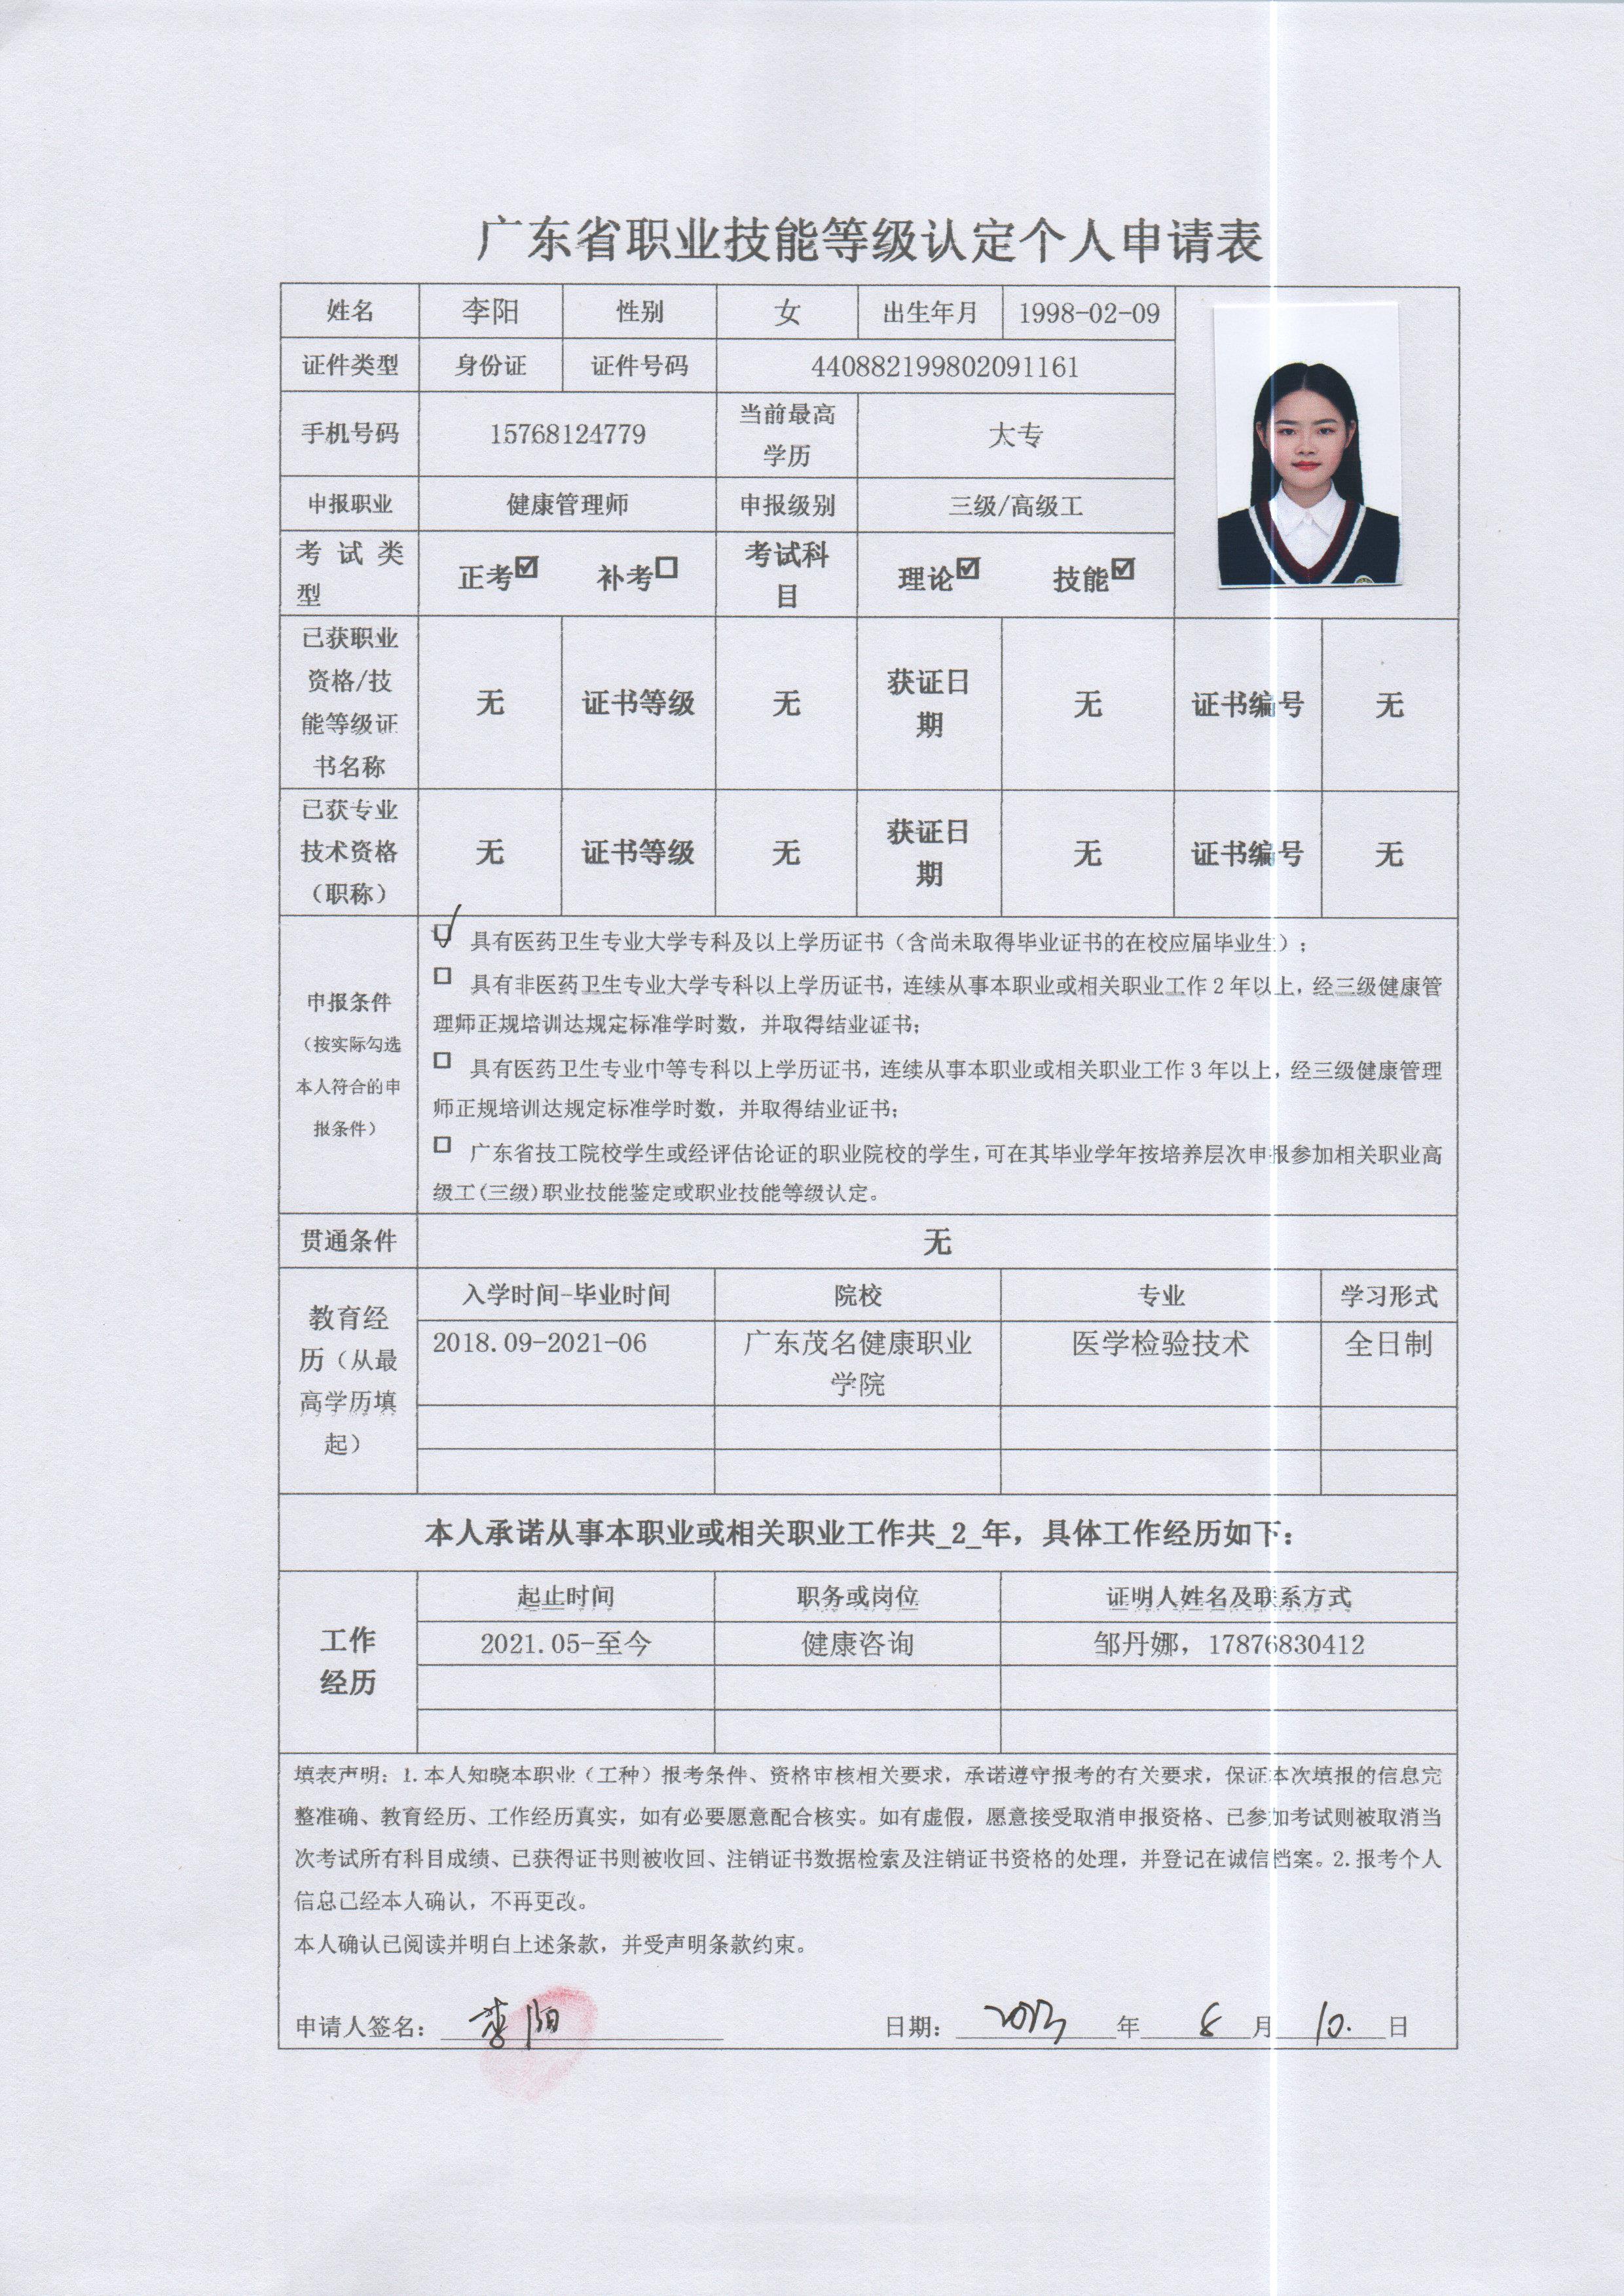 广东省职业技能等级认定个人申请表
姓名 李阳 性别 女 出生年月 1998-02-09
证件类型 身份证 证件号码 440882199802091161
手机号码 15768124779 当前最高学历 大专
申报职业 健康管理师 申报级别 三级/高级工
考试类型 正考☑ 补考☐ 考试科目 理论☑ 技能☑
已获职业资格/技能等级证书名称 无 证书等级 无 获证日期 无 证书编号 无
已获专业技术资格（职称） 无 证书等级 无 获证日期 无 证书编号 无
申报条件
（按实际勾选
本人符合的申
报条件）
☑ 具有医药卫生专业大学专科及以上学历证书（含尚未取得毕业证书的在校应届毕业生）；
☐ 具有非医药卫生专业大学专科以上学历证书，连续从事本职业或相关职业工作2年以上，经三级健康管
理师正规培训达规定标准学时数，并取得结业证书；
☐ 具有医药卫生专业中等专科以上学历证书，连续从事本职业或相关职业工作3年以上，经三级健康管理
师正规培训达规定标准学时数，并取得结业证书；
☐ 广东省技工院校学生或经评估论证的职业院校的学生，可在其毕业学年按培养层次申报参加相关职业高
级工(三级)职业技能鉴定或职业技能等级认定。
贯通条件 无
教育经
历（从最
高学历填
起）
入学时间-毕业时间 院校 专业 学习形式
2018.09-2021-06 广东茂名健康职业学院 医学检验技术 全日制
本人承诺从事本职业或相关职业工作共_2_年，具体工作经历如下：
工作
经历
起止时间 职务或岗位 证明人姓名及联系方式
2021.05-至今 健康咨询 邹丹娜，17876830412
填表声明：1.本人知晓本职业（工种）报考条件、资格审核相关要求，承诺遵守报考的有关要求，保证本次填报的信息完
整准确、教育经历、工作经历真实，如有必要愿意配合核实。如有虚假，愿意接受取消申报资格、已参加考试则被取消当
次考试所有科目成绩、已获得证书则被收回、注销证书数据检索及注销证书资格的处理，并登记在诚信档案。2.报考个人
信息已经本人确认，不再更改。
本人确认已阅读并明白上述条款，并受声明条款约束。
申请人签名：李阳 日期：2023年8月10.日